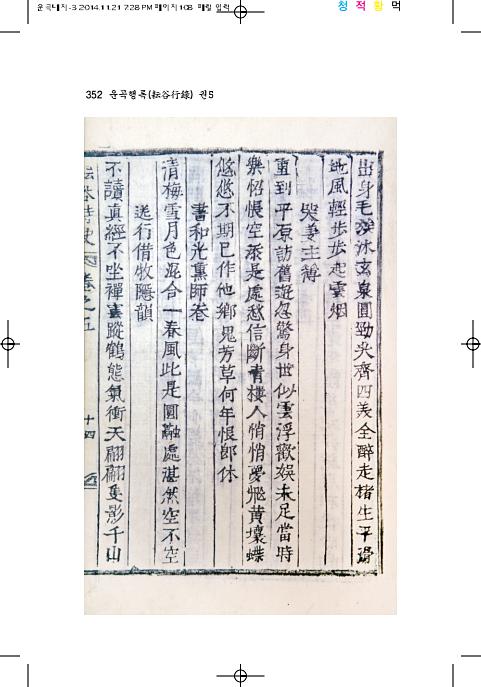 운곡내지-3 2014.11.21 7:28 PM 페이지108 매일 입력
청 적 황 먹
352 운곡행록(耘谷行錄) 권5
出身毛穎沐玄泉圓勁尖齊四美全醉走楮生平滑
地風輕步步起雲烟
哭姜主簿
重到平原訪舊遊忽驚身世似雲浮歡娛未足當時
樂怊悵空添是處愁信斷靑樓人悄悄夢飛黃壤蝶
悠悠不期已作他鄕鬼芳草何年恨卽休
書和光熏師卷
清梅雪月色混合一春風此是圓融處湛然空不空
送行借牧隱韻
不讀眞經不坐禪雲蹤鶴態氣衝天翩翩隻影千山
耘谷詩史 卷之五 十四